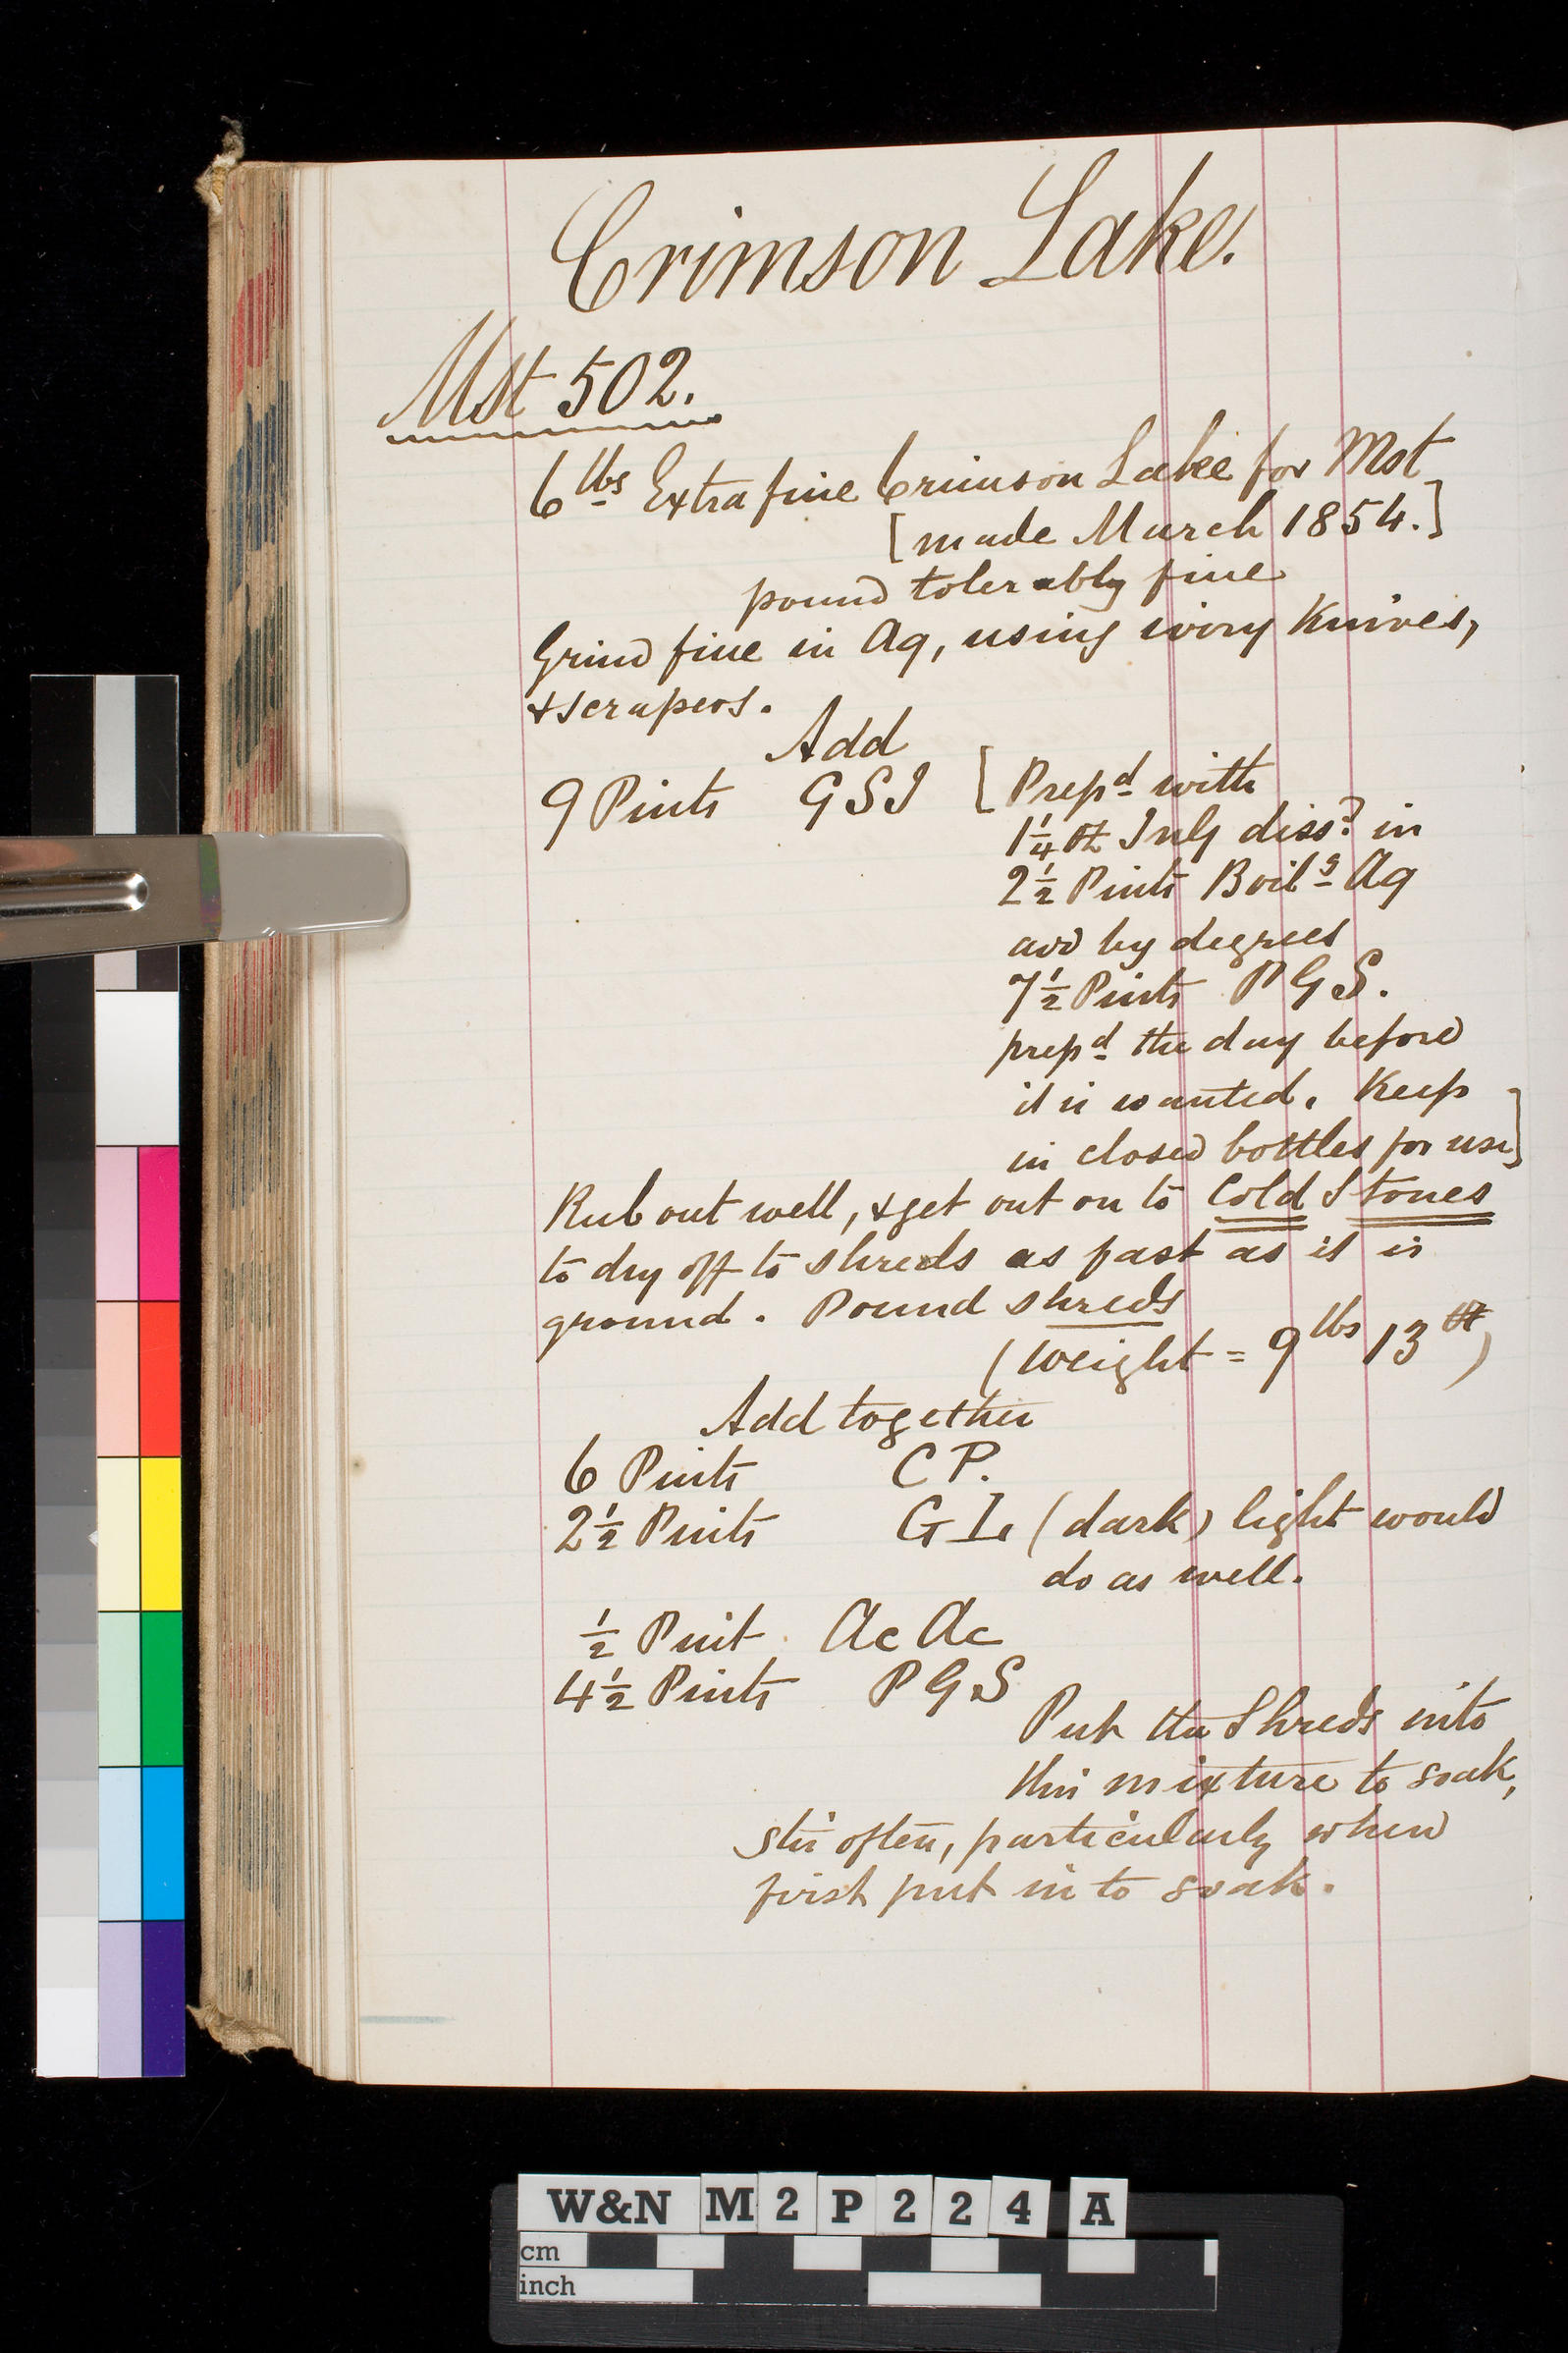 Crimson Lake.
Mst 502.
6 lbs Extra fine Crimson Lake for Mst
[made March 1854.]
pound tolerably fine
Grind fine in Aq, using ivory Knives,
& scrapers.
Add
9 Pints GSI [Prepd with
1 1/4 oz Ing diss? in
2 1/2 Pints Boilg Aq
add by degrees
7 1/2 Pints PGS.
prepd the day before
it is wanted. Keep
in closed bottles for use]
Rub out well, & get out on to Cold Stones
to dry off to shreds as fast as it is
ground. Pound shreds
(weight = 9 lbs 13 oz)
Add together
6 Pints CP.
2 1/2 Pints GL (dark) light would
do as well.
1/2 Pint Ac Ac
4 1/2 Pints PGS
Put the Shreds into
this mixture to soak,
stir often, particularly when
first put in to soak.
W&N M2P224A
cm
inch